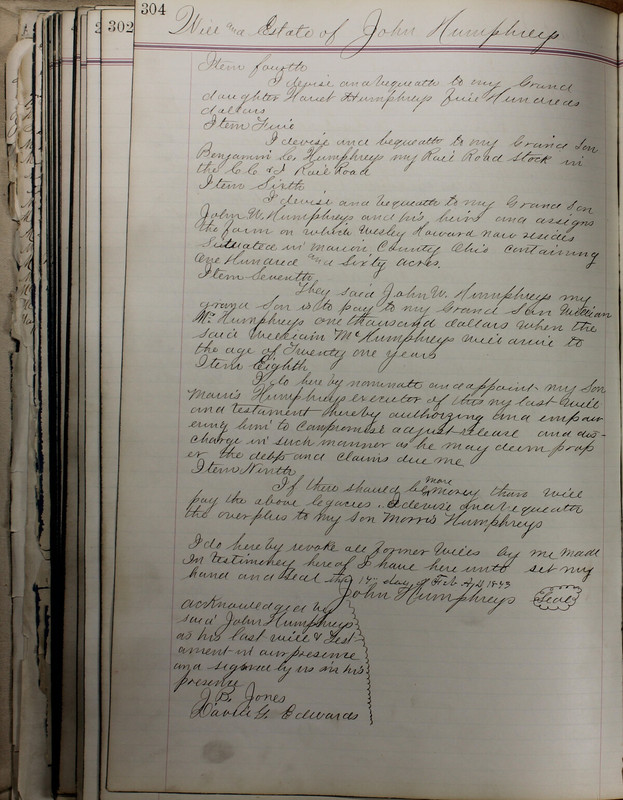 304
302
Will and Estate of John Humphreys
Item fourth
I devise and bequeath to my Grand
daughter Hariet Humphreys Five Hundred
dollars
Item Five
I devise and bequeath to my Grand Son
Benjamin Humphreys my Rail Road Stock in
the C.C. & I Rail Road
Item Sixth
I devise and bequeath to my Grand Son
John W. Humphreys and his heirs and assigns
the farm on which Wesley Howard now resides
Situated in Marion County Ohio containing
One Hundred and Sixty acres.
Item Seventh.
They said John W. Humphreys my
grand Son is to pay to my Grand Son William
Mc Humphreys one thousand dollars when the
said William Mc Humphreys will arive to
the age of Twenty one years
Item Eighth
I do here by nominate and appoint my Son
Morris Humphreys executor of this my last will
and testament hereby authorizing and empow-
ering him to compromise adjust release and dis-
charge in such manner as he may deem prop
er the debts and claims due me
Item Ninth
If there should be more money than will
pay the above legacies I devise and bequeath
the overplus to my Son Morris Humphreys
I do hereby revoke all former Wills by me made
In testimony hereof I have here unto set my
hand and Seal this 14" day of Feb A.D.
John Humphreys Seal
acknowledged by
said John Humphreys
as his last will & Test
ament in our presence
and signed by us in his
presence
J. B. Jones
David G. Edwards